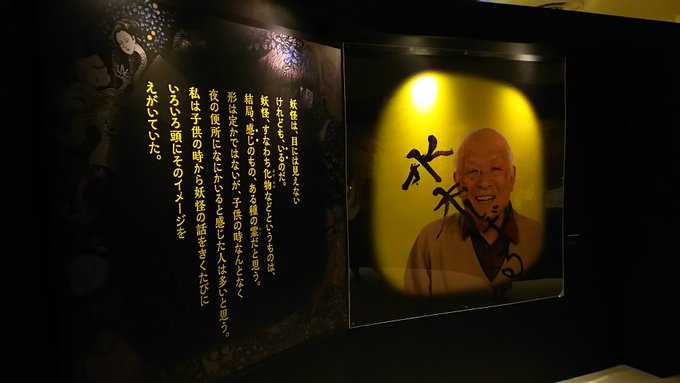 妖怪は、目には見えない
けれども、いるのだ。
妖怪、すなわち化物などというものは、
結局、感じのもの、ある種の霊だと思う。
形は定かではないが、子供の時なんとなく
夜の便所になにかいると感じた人は多いと思う。
私は子供の時から妖怪の話をきくたびに
いろいろ頭にそのイメージを
えがいていた。
水木しげる